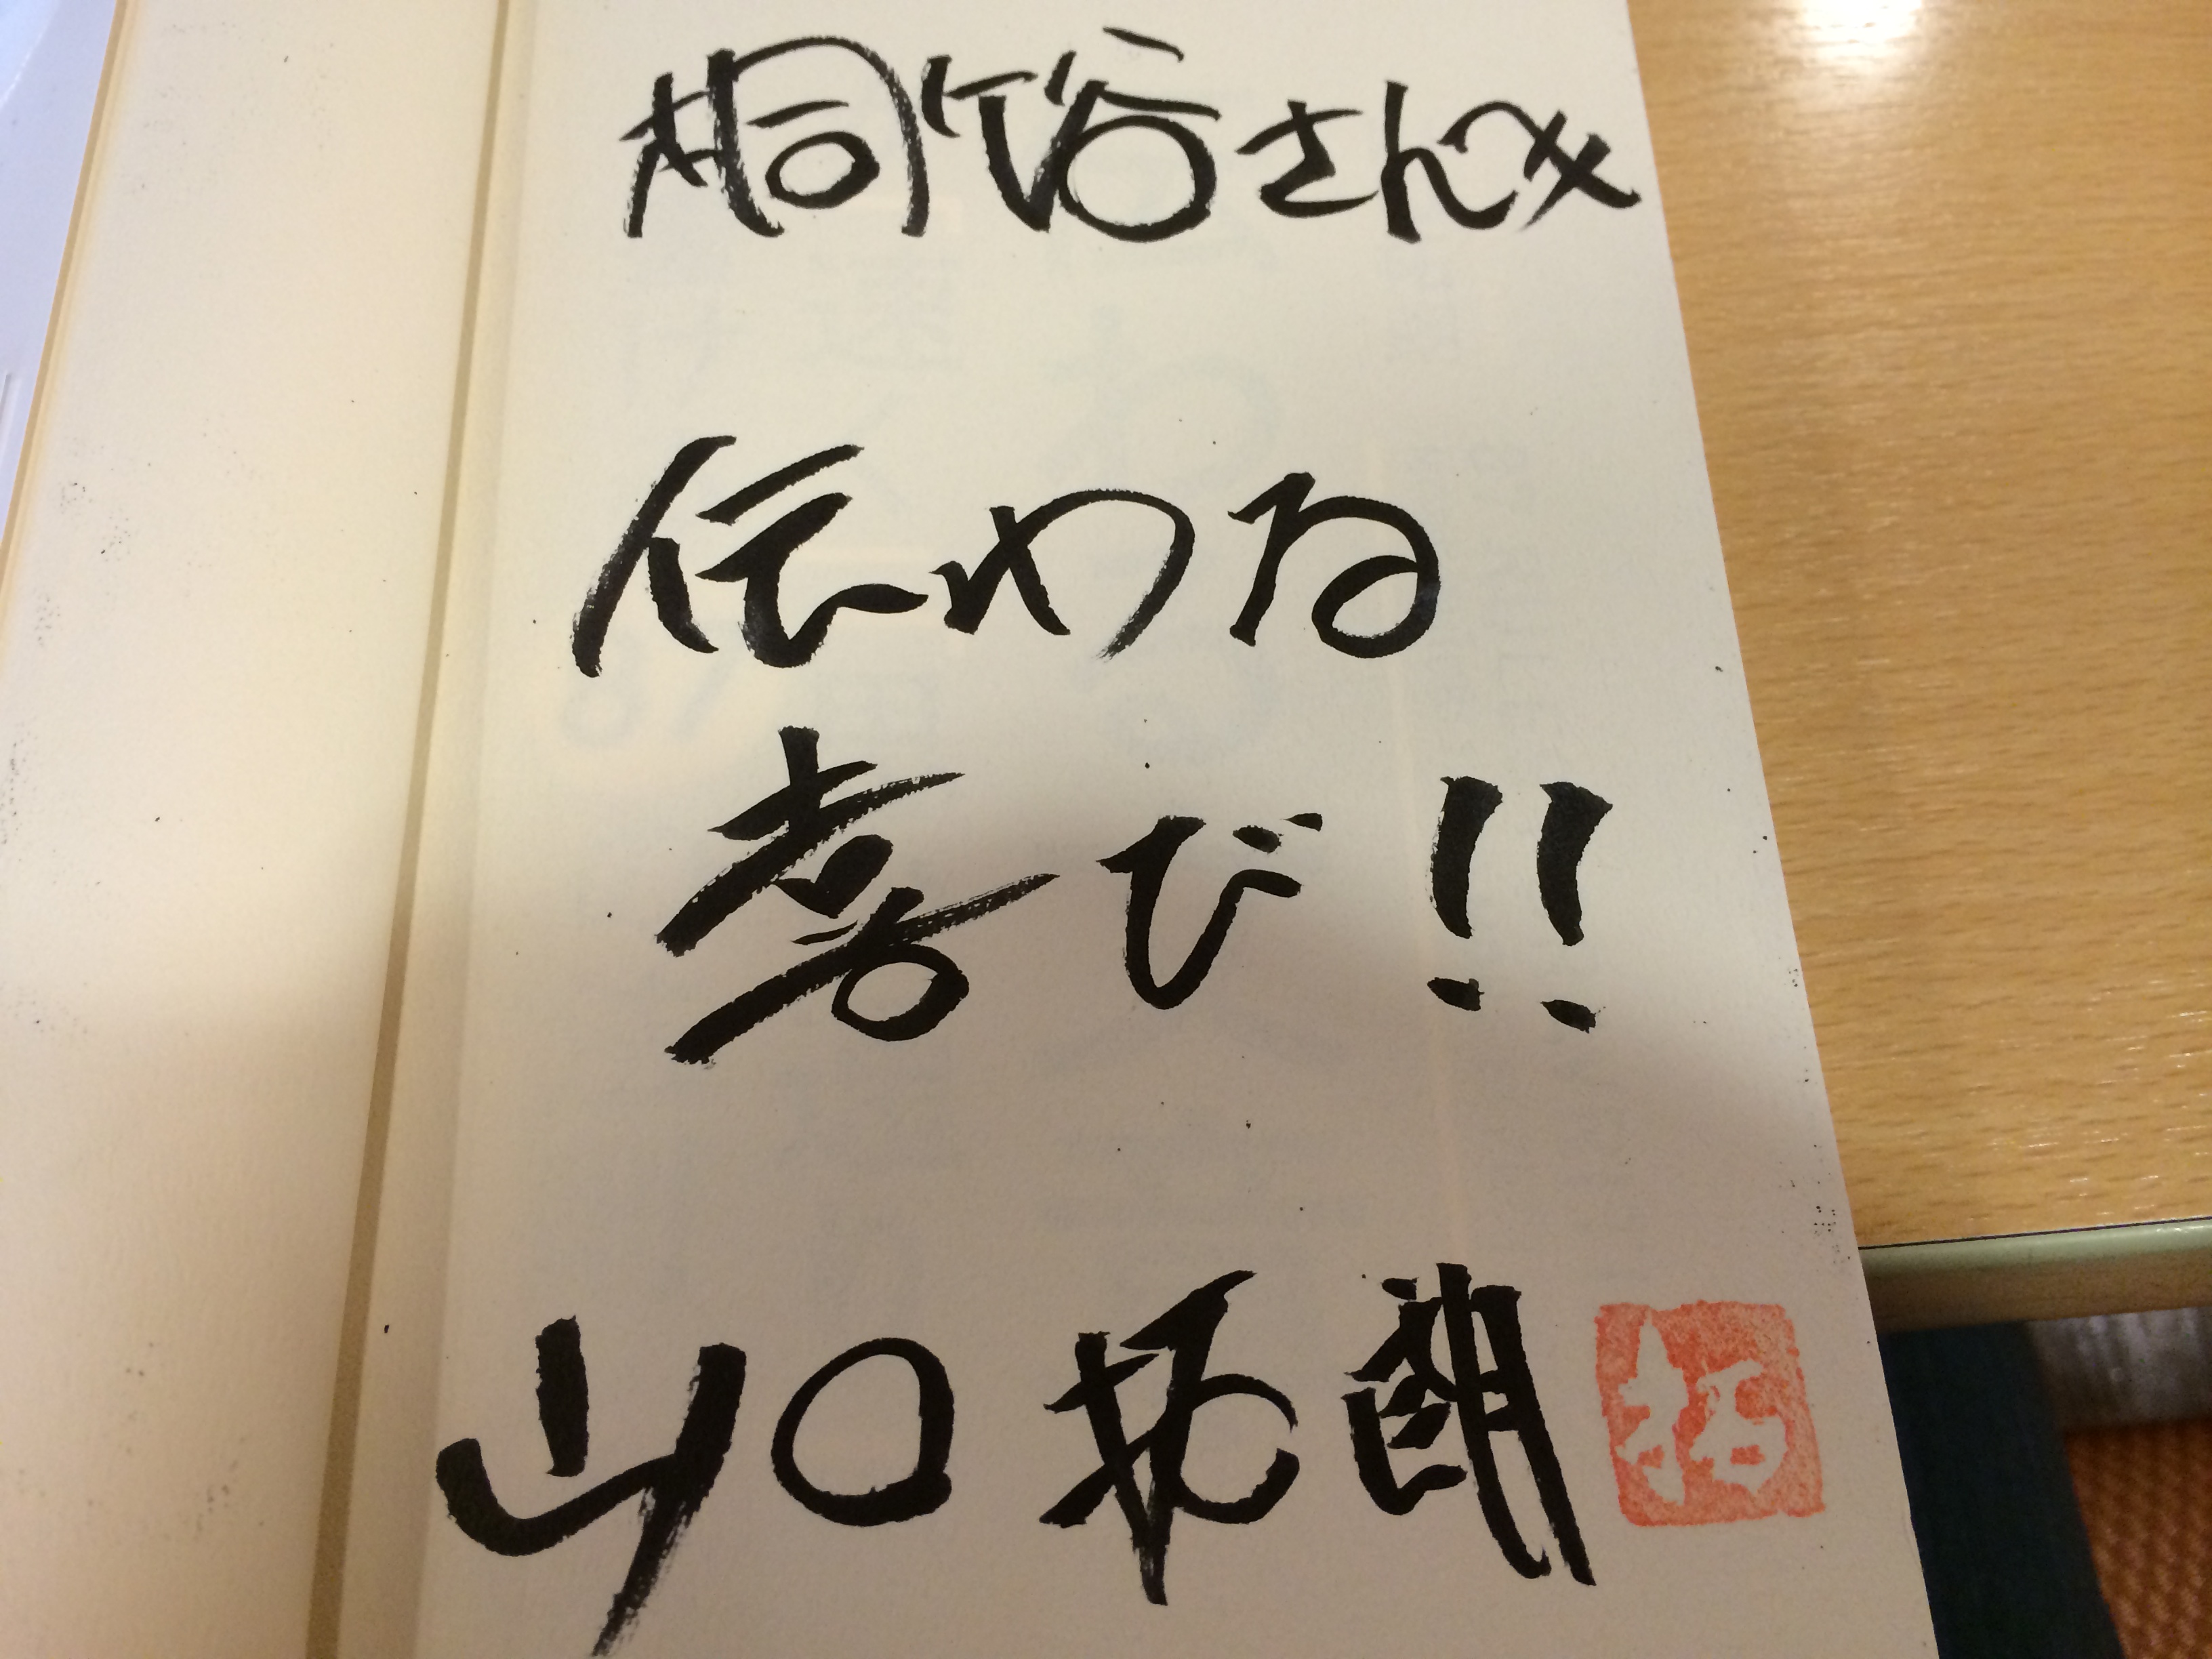 桐谷さんへ
伝わる
喜び!!
山口拓朗
拓